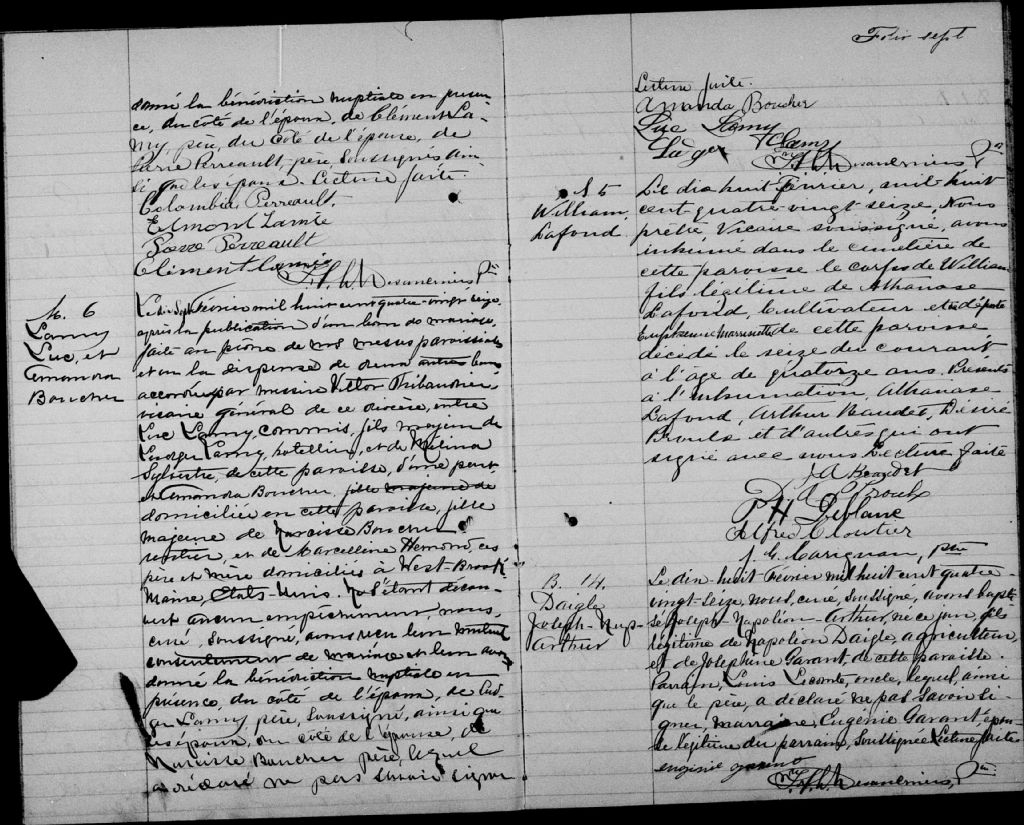 donné la bénédiction nuptiale en présen-
ce, du côté de l'époux, de Clément La-
my, père, du côté de l'épouse, de
Pierre Perreault, père, soussignés ain-
si que les époux. Lecture faite.
Colombia Perreault,
Elmont Lamie
Pierre Perreault
Clément Lamie
F. X. Desaulniers Ptre
M. 6
Lamy
Luc, et
Amanda
Boucher
Le dix-sept Février mil huit cent quatre-vingt seize,
après la publication d'un ban de mariage,
faite au prône de nos messes paroissiales
et vu la dispense de deux autres bans
accordée par messire Victor
vicaire général de ce diocèse, entre
Luc Lamy, commis, fils majeur de
Lamy, hotellier, et de Melina
Sylvestre, de cette paroisse, d'une part
et Amanda Boucher, fille majeure de
domiciliée en cette paroisse, fille
majeure de Narcisse Boucher
rentier, et de Marcelline Hemond, ces
père et mère domiciliés à West-Brook
Maine, Etats-Unis. Ne s'étant décou-
vert aucun empêchement, nous,
curé, soussigné, avons reçu leur mutuel
consentement de mariage et leur avons
donné la bénédiction nuptiale en
présence, du côté de l'époux, de
Lamy père, soussigné, ainsi que
les époux, du côté de l'épouse, de
Narcisse Boucher père, lequel
a déclaré ne pas savoir signer
Folio sept
Lecture faite.
Amanda Boucher
Luc Lamy
Lamy
Desaulniers Ptre
S 5
William
Lafond
Le dix huit Février, mil huit
cent quatre vingt seize, Nous
prêtre Vicaire soussigné, avons
inhumé dans le cimetière de
cette paroisse le corps de William
fils légitime de Athanase
Lafond, Cultivateur et de
de cette paroisse
décédé le seize du courant
à l'âge de quatorze ans. Présents
à l'inhumation, Athanase
Lafond, Arthur Beaudet, Désiré
Proulx et d'autres qui ont
signé avec nous Lecture faite
J A Beaudet
D Proulx
P H Leblanc
Alfred Cloutier
J. E. Carignan, ptre
B. 14.
Daigle
Joseph-Nap-
Arthur
Le dix-huit Février mil huit cent quatre-
vingt-seize, nous, curé, soussigné, avons bapti-
sé Joseph-Napoléon-Arthur, né ce jour, fils
légitime de Napoléon Daigle, agriculteur,
et de Joséphine Garant, de cette paroisse.
Parrain, Louis Lecomte, oncle, lequel, ainsi
que le père, a déclaré ne pas savoir si-
gner, marraine, Eugénie Garant, épou-
se légitime du parrain, soussignée Lecture faite
Desaulniers, Ptre